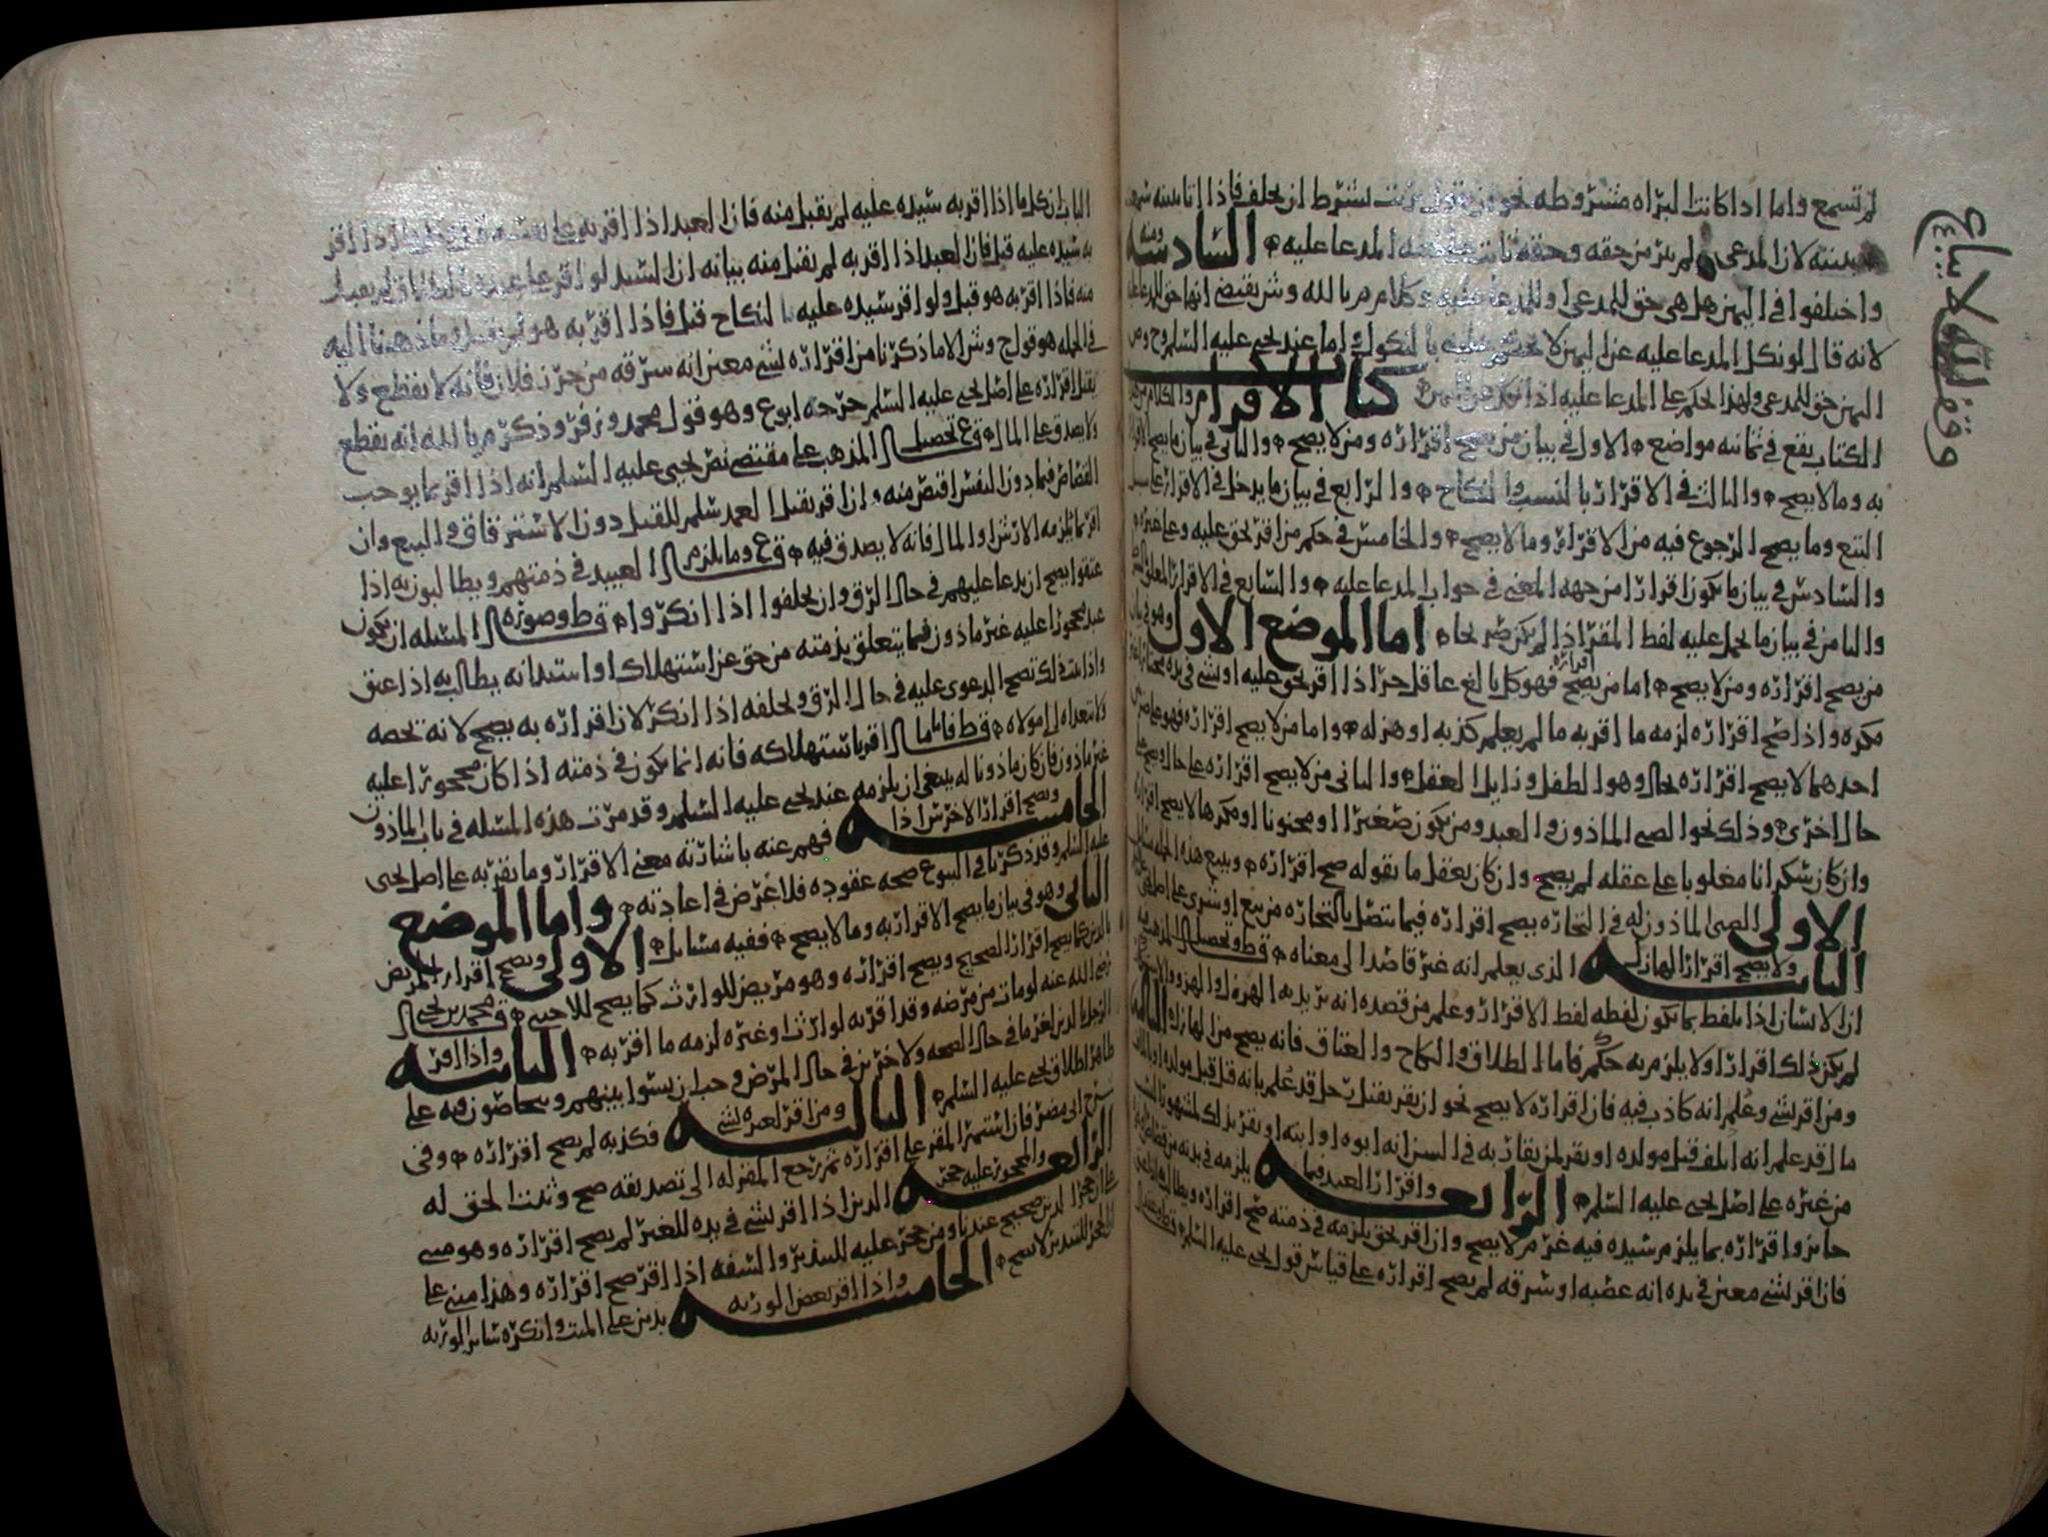 وقف لله لا يباع
لم تسمع واما اذا كانت البراه مشروطه نحو ان يقول بريت بشرط ان يحلف فاذا اتا ببينه سمعت
بينته لان المدعى لم يبر من حقه وحقه ثابت المدعا عليه السادسه ومنه
واختلفوا في اليمين هل هي حق للمدعى او للمدعا عليه وكلام م بالله وش يقتضي انها حق للمدعا عليه
لانه قال لو نكل المدعا عليه عن اليمين لا يحكم عليه بالنكول واما عند يحيى عليه السلم وح وص
اليمين حق للمدعى ولهذا الحكم على المدعا عليه اذا نكل عن اليمين كتاب الاقرار والكلام من هذا
الكتاب يقع في ثمانيه مواضع الاول في بيان من يصح اقراره ومن لا يصح والثاني في بيان ما يصح الاقرار
به وما لا يصح والثالث في الاقرار بالنسب والنكاح والرابع في بيان ما يدخل في الاقرار على سبيل
التبع وما يصح الرجوع فيه من الاقرار وما لا يصح والخامس في حكم من اقر بحق عليه وعلى غيره
والسادس في بيان ما يكون اقرارا من جهه المعنى في جواب المدعا عليه والسابع في الاقرار المعلق بالشرط
والثامن في بيان ما يحمل عليه لفظ المقر اذا لم يكن صريحا اما الموضع الاول وهو في بيان
من يصح اقراره ومن لا يصح اما من يصح اقراره فهو كل بالغ عاقل حر اذا اقر بحق عليه او بشي في يده مختارا غير
مكره واذا صح اقراره لزمه ما اقر به ما لم يعلم كذبه او هزله واما من لا يصح اقراره فهو على ضربين
احدهما لا يصح اقراره بحال وهو الطفل وزايل العقل والثاني من لا يصح اقراره على حال ويصح على
حال اخرى وذلك نحو الصبي الماذون والعبد ومن يكون صغيرا او مجنونا او مكرها لا يصح اقراره
وان كان سكرانا مغلوبا على عقله لم يصح وان كان يعقل ما يقوله صح اقراره ويتبع هذه الجمله مسائل
الاولى الصبي الماذون له في التجاره يصح اقراره فيما يتصل بالتجاره من بيع او شرى على اصل يحيى
الثانيه ولا يصح اقرار الهازل الذي يعلم انه غير قاصد الى معناه قط وتحصيل المذهب فيه
ان الانسان اذا تلفظ بما يكون لفظه لفظ الاقرار وعلم من قصده انه يريد به الهزل والهزو والاستهزا
لم يكن ذلك اقرارا ولا يلزم به حكم فاما الطلاق والنكاح والعتاق فانه يصح من الهازل الثالثه
ومن اقر بشي وعلم انه كاذب فيه فان اقراره لا يصح نحو ان يقر بقتل رجل قد علم بانه قتل قبل مولده او باتلاف
مال قد علم انه اتلف قبل مولده او يقر لمن يقاربه في السن انه ابوه او ابنه او يقر بذلك لمشهور النسب
من غيره على اصل يحيى عليه السلم الرابعه واقرار العبد فيما يلزمه في بدنه من قصاص
جايز واقراره بما يلزم سيده فيه غرم لا يصح وان اقر بحق يلزمه في ذمته صح اقراره ويطالب
فان اقر بشي معين في يده انه غصبه او سرقه لم يصح اقراره على قياس قول يحيى عليه السلم قط وتحصيل
الباب ان كل ما اذا اقر به سيده عليه لم يقبل منه فان العبد اذا اقر به على نفسه قبل وكل ما اذا اقر
به سيده عليه قبل فان العبد اذا اقر به لم يقبل منه بيانه ان السيد لو اقر على عبده بالطلاق لم يقبل
منه فاذا اقر به هو قبل ولو اقر سيده عليه بالنكاح قبل فاذا اقر به هو لم يقبل وما ذهبنا اليه
في الجمله هو قول ح وش الا ما ذكرنا من اقراره بشي معين انه سرقه من حرز فلان فانه لا يقطع ولا
يقبل اقراره على اصل يحيى عليه السلم خرجه ابو ع وهو قول محمد وزفر وذكر م بالله انه يقطع
ولا يصدق على المال ق ع تحصيل المذهب على مقتضى نص يحيى عليه السلم انه اذا اقر بما يوجب
القصاص فيما دون النفس اقتص منه وان اقر بقتل العمد سلم للقتل دون الاسترقاق والبيع وان
اقر بما يلزمه الارش او المال فانه لا يصدق فيه ق ع وما يلزم العبيد في ذمتهم ويطالبون به اذا
عتقوا يصح ان يدعا عليهم في حال الرق وان يحلفوا اذا انكروا قط وصوره المسله ان يكون
عبد محجورا عليه غير ماذون فيما يتعلق بذمته من حق عن استهلاك او استدانه يطالب به اذا عتق
واذا ثبت ذلك تصح الدعوى عليه في حال الرق ويحلفه اذا انكر لان اقراره به يصح لانه يخصه
ولا يتعداه الى مولاه قط فاما مال اقر باستهلاكه فانه انما يكون في ذمته اذا كان محجورا عليه
غير ماذون فان كان ماذونا له ينبغي ان يلزمه عند يحيى عليه السلم وقد مرت هذه المسله في باب الماذون
الخامسه ويصح اقرار الاخرس اذا فهم عنه باشارته معنى الاقرار وما يقر به على اصل يحيى
عليه السلم وقد ذكرنا في البيوع صحه عقوده فلا غرض في اعادته واما الموضع
الثاني وهو في بيان ما يصح الاقرار به وما لا يصح ففيه مسايل الاولى ويصح اقرار المريض
بالدين كما يصح اقرار الصحيح ويصح اقراره وهو مريض للوارث كما يصح للاجنبي ق محمد بن يحيى
رضي الله عنه لو مات من مرضه وقد اقر به لوارث او غيره لزمه ما اقر به الثانيه واذا اقر
الرجل بالدين لغرما في حال الصحه ولاخرين في حال المرض وجب ان يستوا بينهم ويتحاصون فيه على
ظاهر اطلاق يحيى عليه السلم الثالثه ومن اقر لغيره بشي فكذبه لم يصح اقراره وفي
شرح ابي مضر فان استمر المقر على اقراره ثم رجع المقر له الى تصديقه صح وثبت الحق له
الرابعه والمحجور عليه حجر الدين اذا اقر بشي في يده للغير لم يصح اقراره وهو مبني
على ان حجر الدين صحيح عندنا ومن حجر عليه للتبذير والسفه اذا اقر صح اقراره وهذا مبني على
ان الحجر للتبذير لا يصح الخامسه واذا اقر بعض الورثه بدين على الميت وانكره سائر الورثه